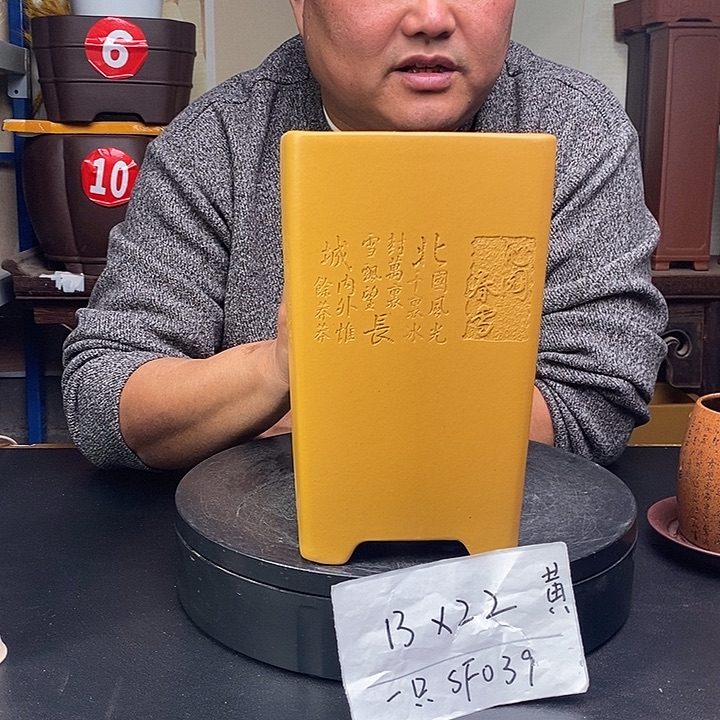 6
10
北國風光
千裏冰
封萬裏
雪飄望長
城內外惟
餘莽莽
13 x 22 黄
一只 SF039